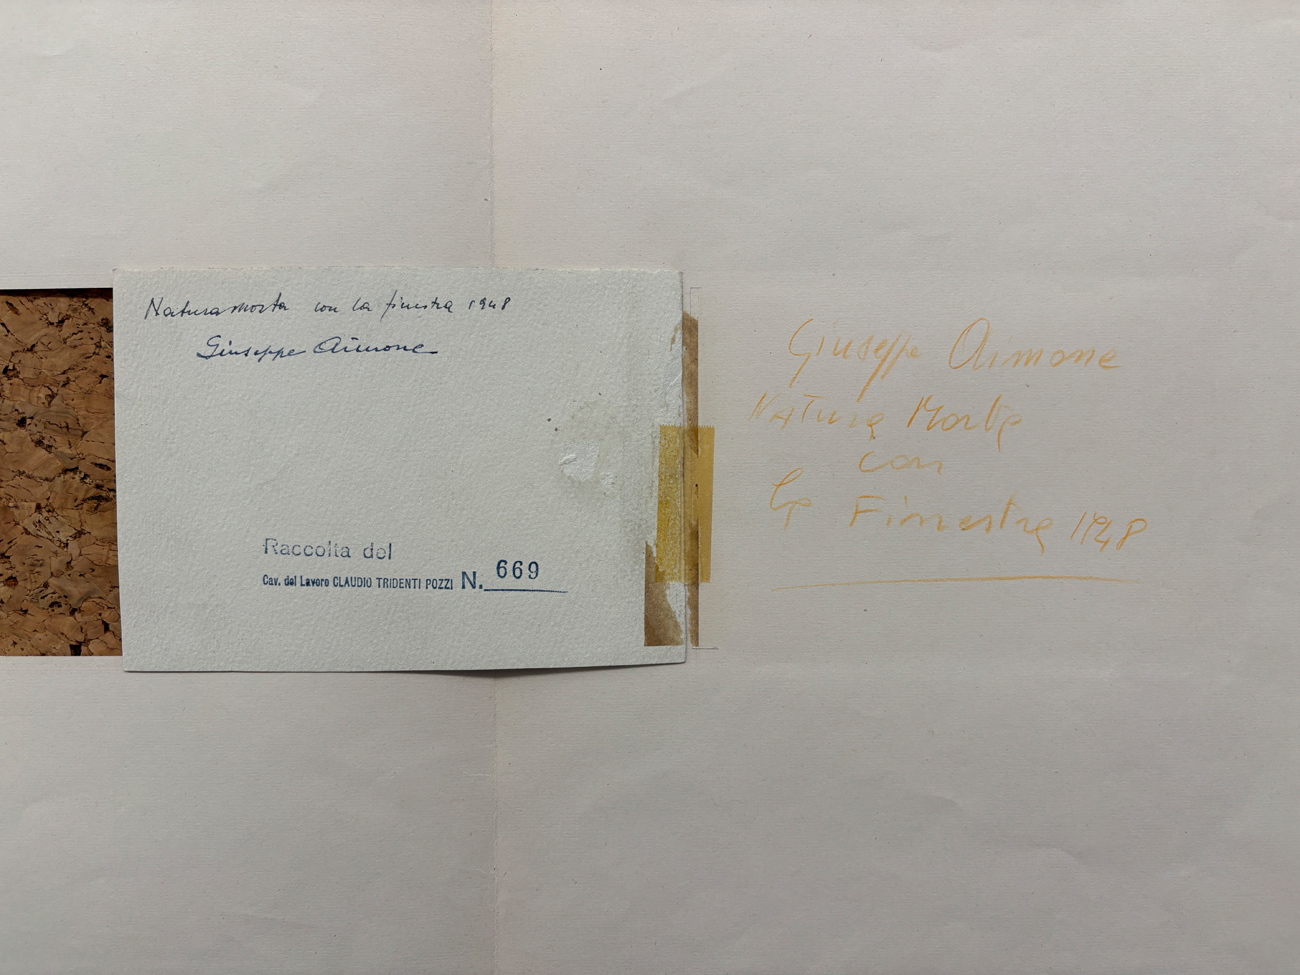 Natura morta con la finestra 1948
Giuseppe Aimone
Raccolta del
Cav. del Lavoro CLAUDIO TRIDENTI POZZI N. 669
Giuseppe Aimone
Natura Morta
con
la Finestra 1948